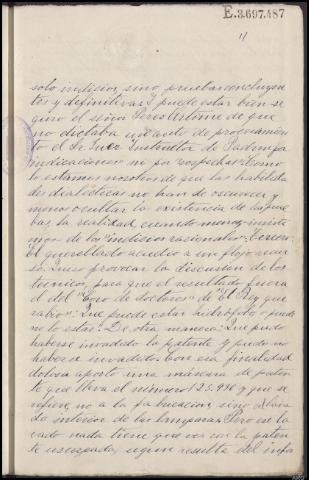 E.3.697.487
11
solo indicios, sino pruebas concluyen
tes y definitivas y puede estar bien se
guro el señor Peres Artime de que
no dictaba un auto de procesamien
to el Sr Juez Instructor de Padron por
indicaciones ni por sospechas. Como
lo estamos nosotros de que las habilida
des dialécticas no han de oscurecer y
menos ocultar la existencia de las prue
bas, la realidad, cuando menos insisti
mos de los "indicios racionales". Tercero.
El querellado acudió a un flojo recur
so. Quiso provocar la discusion de los
tecnicos, para que el resultado fuera
el del "Coro de doctores" de "El Rey que
rabió": Que puede estar hidrófobo y puede
no lo estar. De otra manera: Que pudo
haberse invadido la patente y pudo no
haberse invadido. Con esa finalidad
dolosa aportó una máscara de paten
te que lleva el número 125.990 y que se
refiere, no a la fabricacion, sino al vacia
do interior de las lamparas. Pero este
vaciado nada tiene que ver con la paten
te usurpada, segun resulta del infor